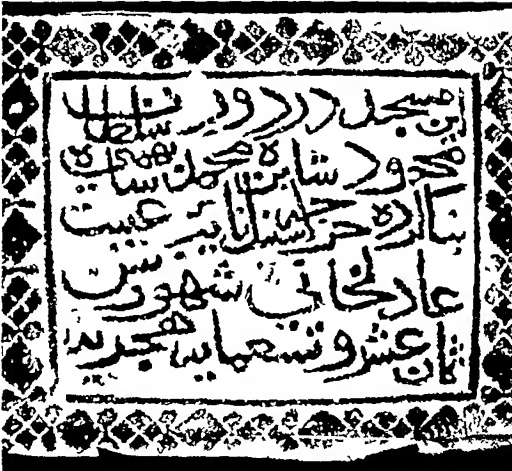 این مسجد در دور سلطان
محمود شاه بن محمد شاه بهمنی
بنا کرده خواجه سنبل نایب غیبت
عادلخانی شهور سنین
ثمان عشر و تسعمایه هجریه